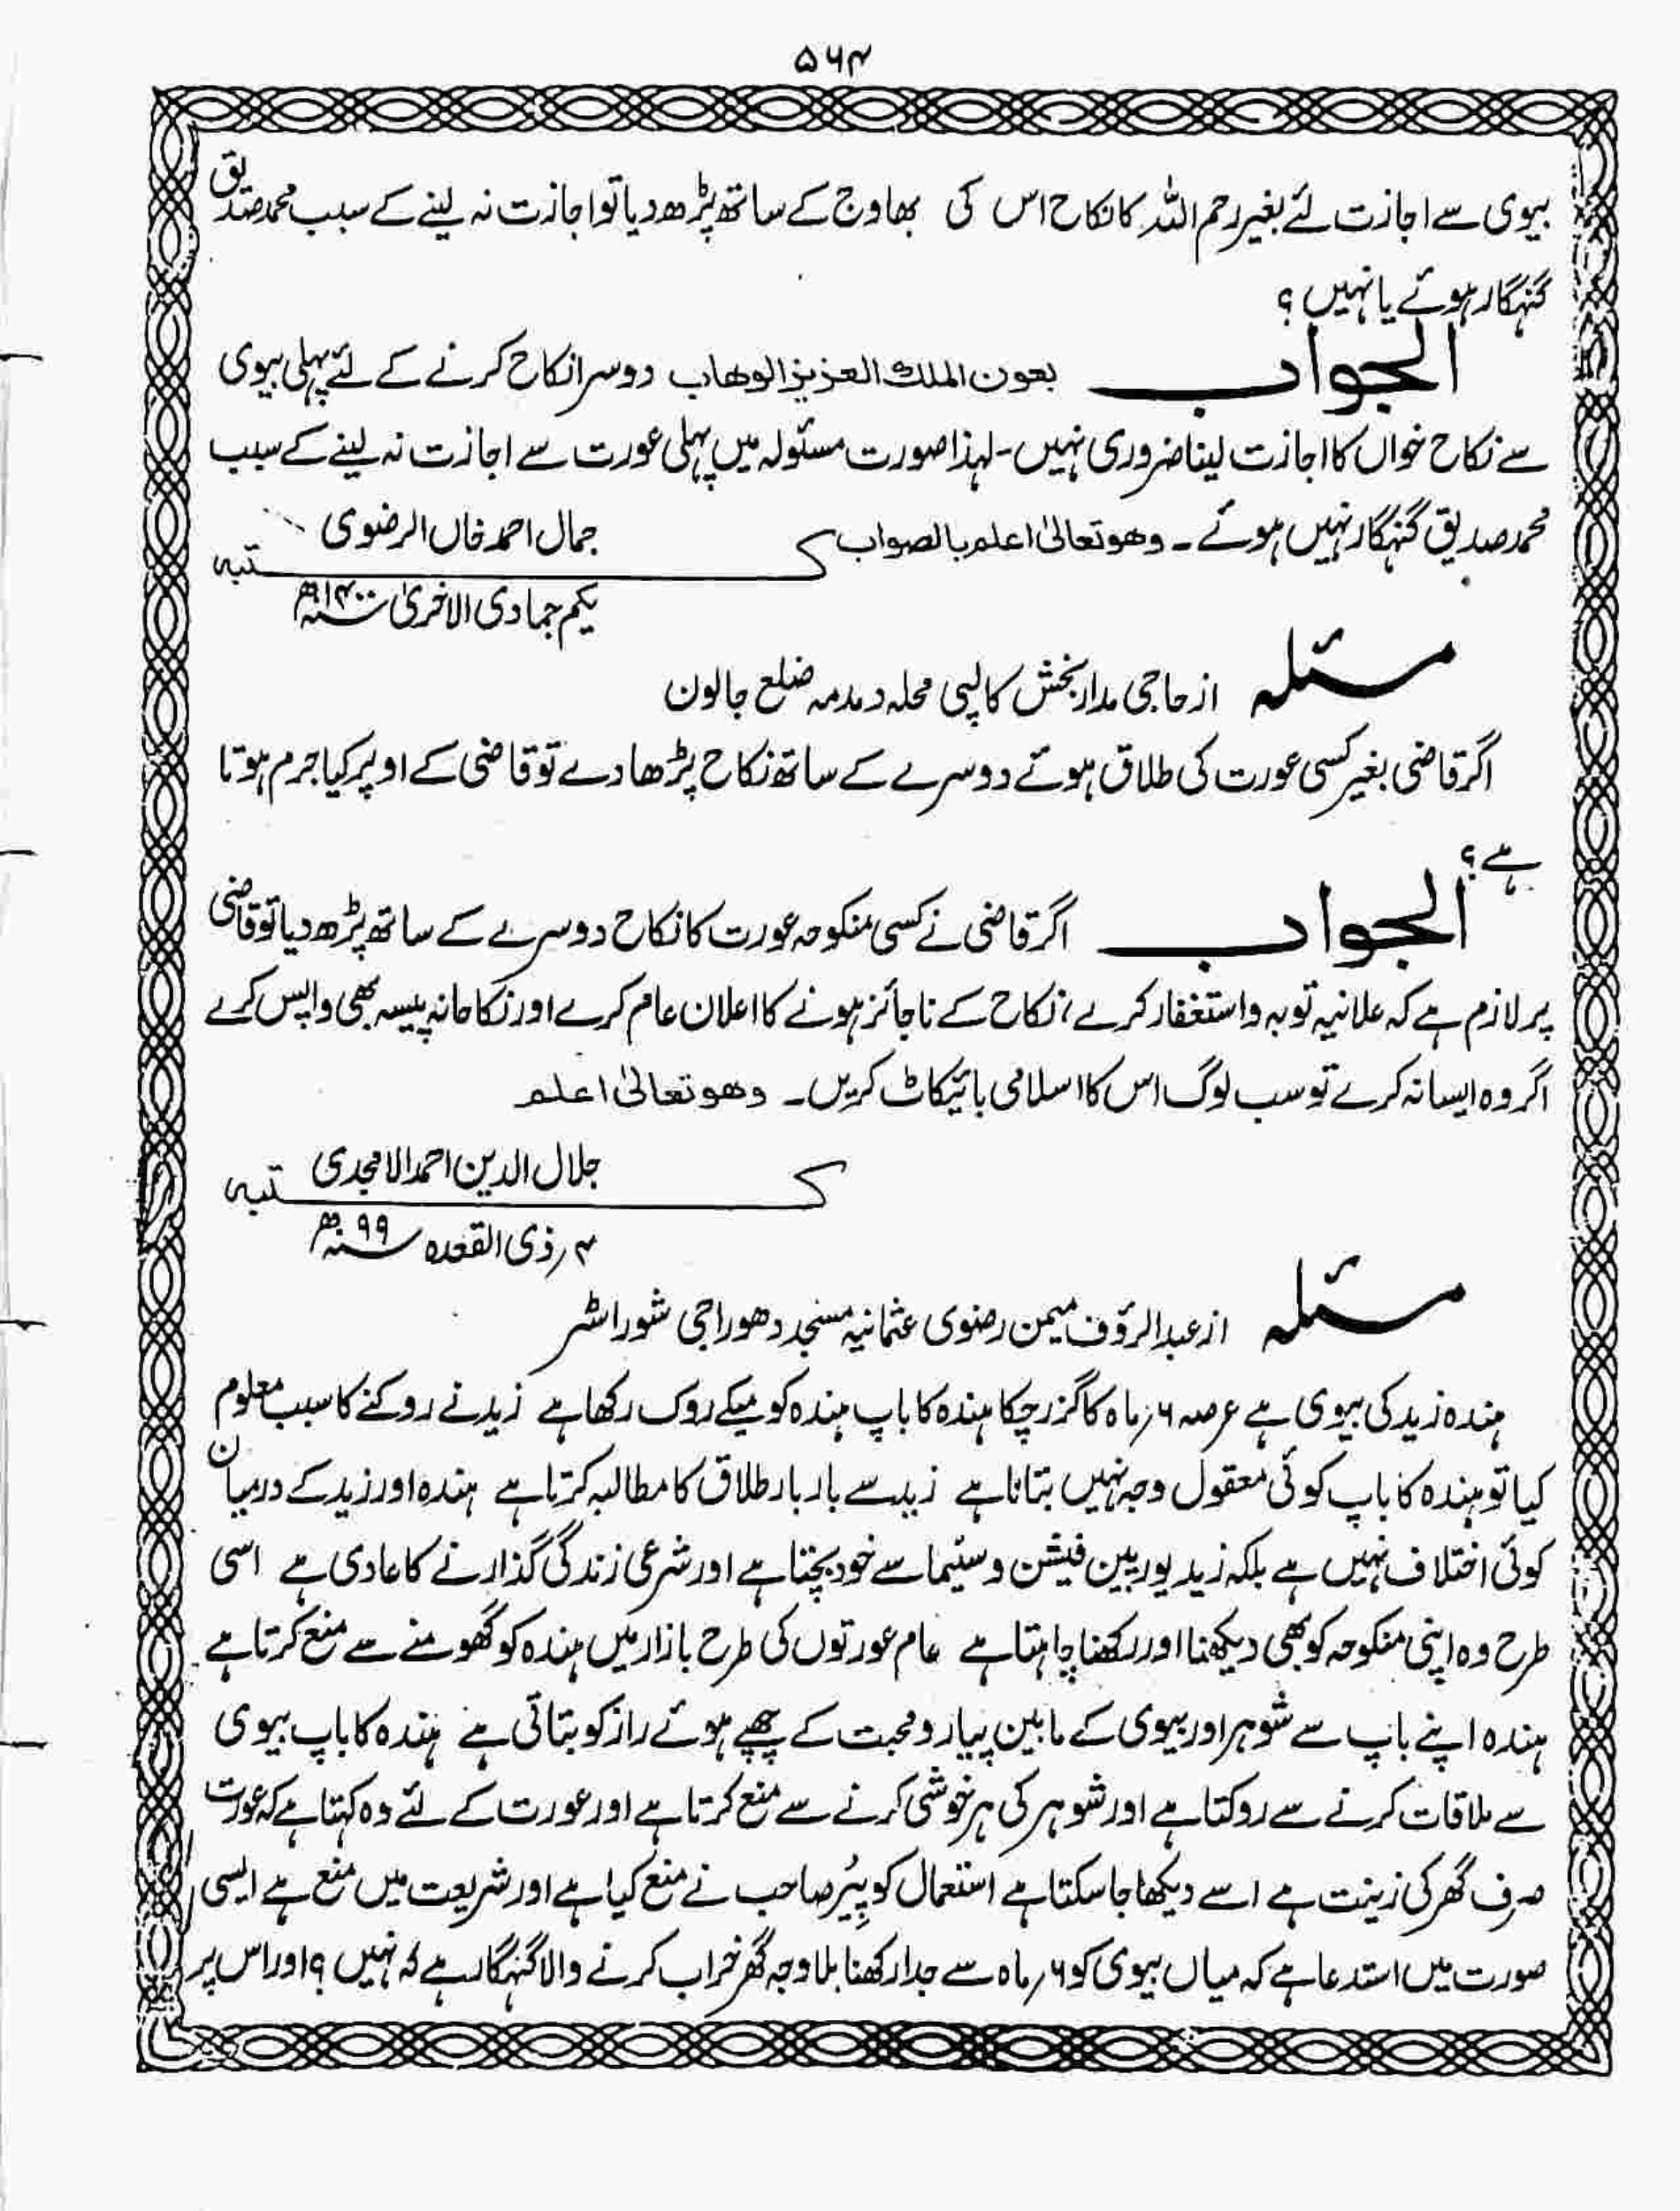 ۵۶۴
بیوی سے اجازت لئے بغیر رحم اللہ کا نکاح اس کی بھاوج کے ساتھ پڑھ دیا تو اجازت نہ لینے کے سبب محمد صدیق
گنہگار ہوئے یا نہیں ؟
الجواب بعون الملك العزيز الوهاب دوسرا نکاح کرنے کے لئے پہلی بیوی
سے نکاح خواں کا اجازت لینا ضروری نہیں ۔ لہذا صورت مسئولہ میں پہلی عورت سے اجازت نہ لینے کے سبب
محمد صدیق گنہگار نہیں ہوئے ۔ وھو تعالیٰ اعلم بالصواب
جمال احمد خاں الرضوی
کتبہ
یکم جمادی الاخریٰ سنہ ۱۴۰۰ھ
مسئلہ از حاجی مدار بخش کالپی محلہ دمدمہ ضلع جالون
اگر قاضی بغیر کسی عورت کی طلاق ہوئے دوسرے کے ساتھ نکاح پڑھا دے تو قاضی کے اوپر کیا جرم ہوتا
ہے ؟
الجواب اگر قاضی نے کسی منکوحہ عورت کا نکاح دوسرے کے ساتھ پڑھ دیا تو قاضی
پر لازم ہے کہ علانیہ توبہ و استغفار کرے ، نکاح کے ناجائز ہونے کا اعلان عام کرے اور نکاحانہ پیسہ بھی واپس کرے
اگر وہ ایسا نہ کرے تو سب لوگ اس کا اسلامی بائیکاٹ کریں ۔ وھو تعالیٰ اعلم
جلال الدین احمد الامجدی
کتبہ
۴؍ ذی القعدہ سنہ ۹۹ھ
مسئلہ از عبدالرؤف میمن رضوی عثمانیہ مسجد دھوراجی شوراشٹر
ہندہ زید کی بیوی ہے عرصہ ۶؍ ماہ کا گزر چکا ہندہ کا باپ ہندہ کو میکے روک رکھا ہے زید نے روکنے کا سبب معلوم
کیا تو ہندہ کا باپ کوئی معقول وجہ نہیں بتاتا ہے زید سے بار بار طلاق کا مطالبہ کرتا ہے ہندہ اور زید کے درمیان
کوئی اختلاف نہیں ہے بلکہ زید یورپین فیشن و سنیما سے خود بچتا ہے اور شرعی زندگی گذارنے کا عادی ہے اسی
طرح وہ اپنی منکوحہ کو بھی دیکھنا اور رکھنا چاہتا ہے عام عورتوں کی طرح بازار میں ہندہ کو گھومنے سے منع کرتا ہے
ہندہ اپنے باپ سے شوہر اور بیوی کے مابین پیار و محبت کے چھپے ہوئے راز کو بتاتی ہے ہندہ کا باپ بیوی
سے ملاقات کرنے سے روکتا ہے اور شوہر کی ہر خوشی کرنے سے منع کرتا ہے اور عورت کے لئے وہ کہتا ہے کہ عورت
صرف گھر کی زینت ہے اسے دیکھا جا سکتا ہے استعمال کو پیر صاحب نے منع کیا ہے اور شریعت میں منع ہے ایسی
صورت میں استدعا ہے کہ میاں بیوی کو ۶؍ ماہ سے جدا رکھنا بلا وجہ گھر خراب کرنے والا گنہگار ہے کہ نہیں ؟ اور اس پر